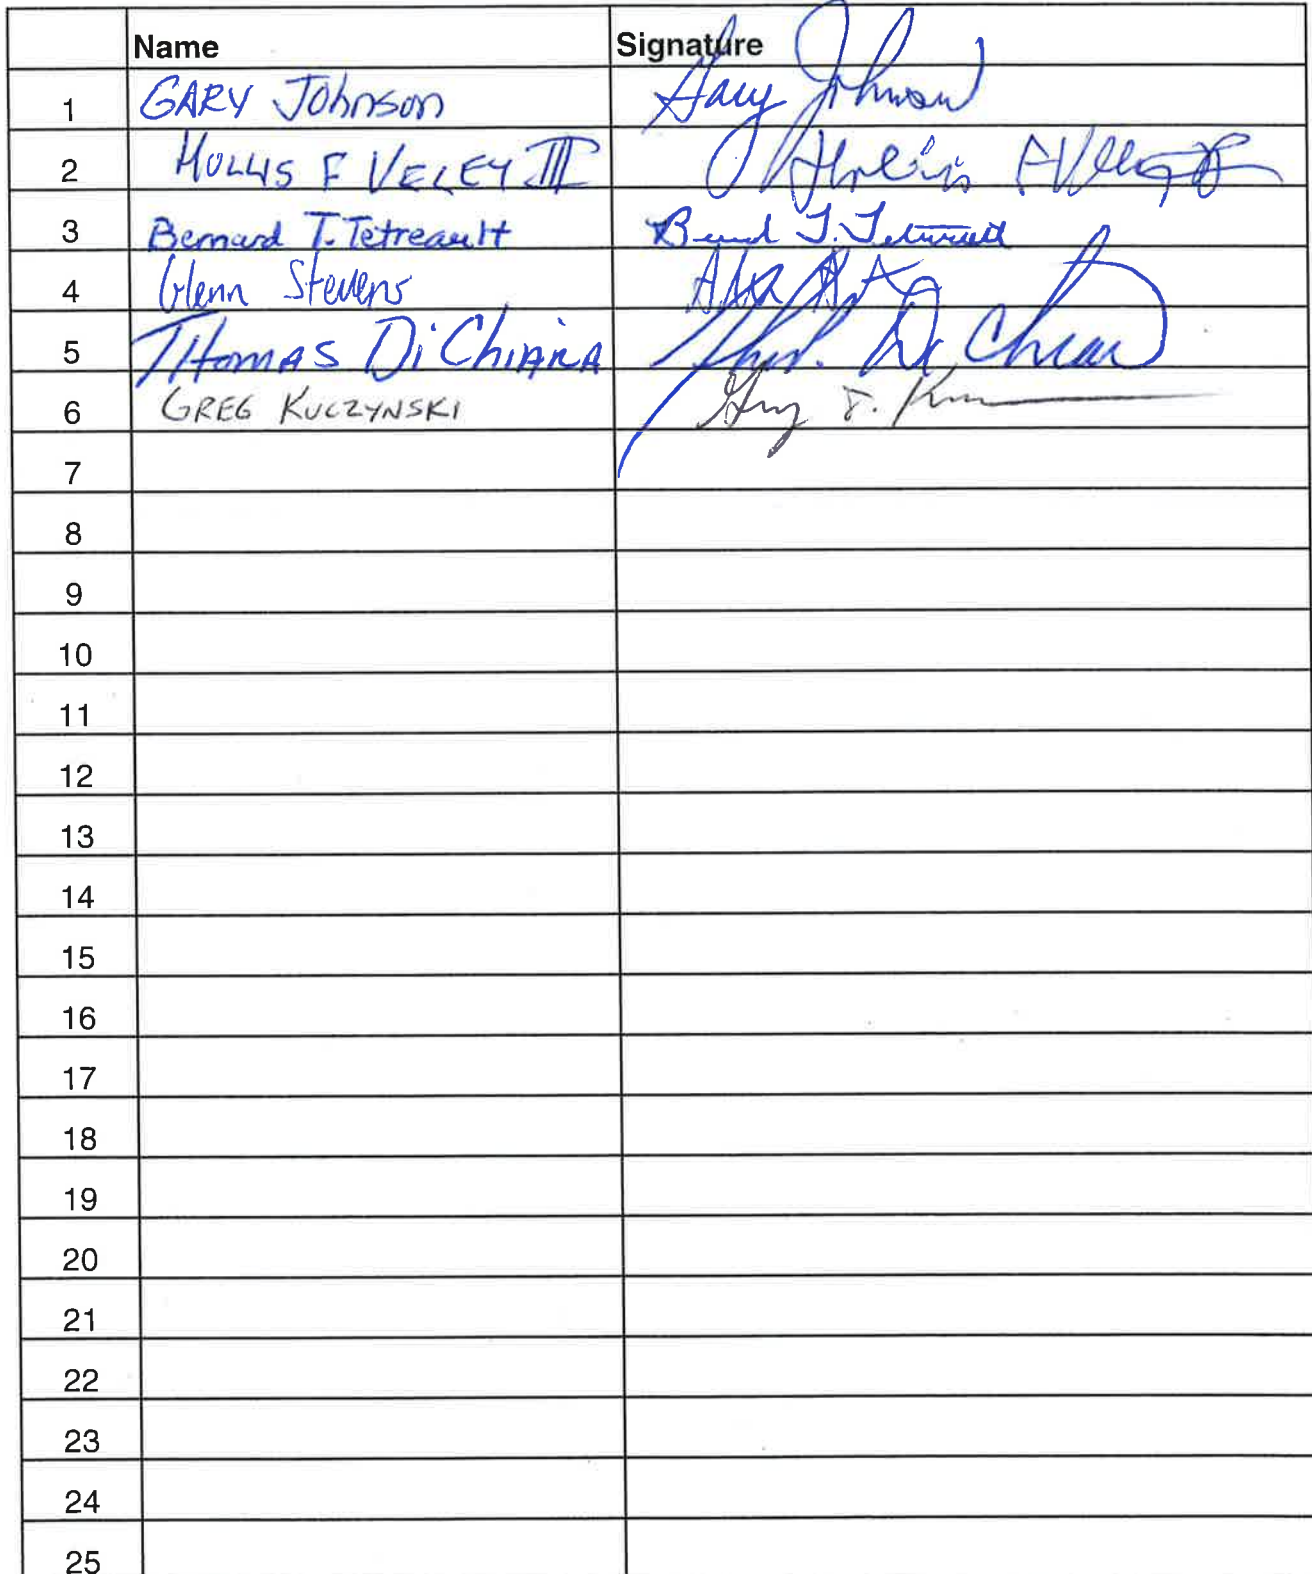 Name Signature
1 GARY Johnson Gary Johnson
2 HOLLIS F VELEY III Hollis F Veley III
3 Bernard T. Tetreault Bernard T. Tetreault
4 Glenn Stevens
5 THOMAS DiChiARA Thos. Di Chiara
6 GREG KUCZYNSKI
7
8
9
10
11
12
13
14
15
16
17
18
19
20
21
22
23
24
25